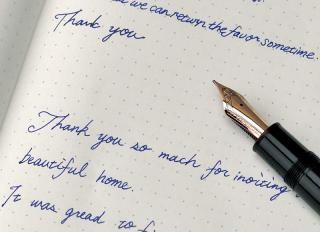 we can return the favor sometime.
Thank you
Thank you so mach for inoicing
beautiful home.
It was gread to